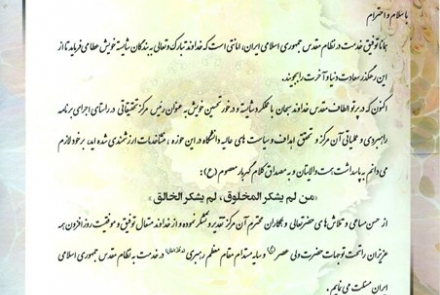 با سلام و احترام
همانا توفیق خدمت در نظام مقدس جمهوری اسلامی ایران، امانتی است که خداوند تبارک و تعالی به بندگان شایسته خویش عطا می فرماید تا از
این رهگذر سعادت دنیا و آخرت را بجویند.
اکنون که در پرتو الطاف مقدس خداوند سبحان با عملکرد شایسته و در خور تحسین خویش به عنوان رئیس مرکز تحقیقاتی در راستای اجرای برنامه
راهبردی و عملیاتی آن مرکز و تحقق اهداف و سیاست های عالیه دانشگاه در این حوزه، منشا خدمات ارزشمندی شده اید، بر خود لازم
می دانم به پاسداشت همت والایتان و به مصداق کلام گهربار معصوم (ع):
«من لم یشکر المخلوق، لم یشکر الخالق»
از حسن مساعی و تلاش های حضرتعالی و همکاران محترم آن مرکز تقدیر و تشکر نموده و از خداوند متعال توفیق و موفقیت روزافزون همه
عزیزان را تحت توجهات حضرت ولی عصر و سایه مستدام مقام معظم رهبری در خدمت به نظام مقدس جمهوری اسلامی
ایران مسئلت می نمایم.